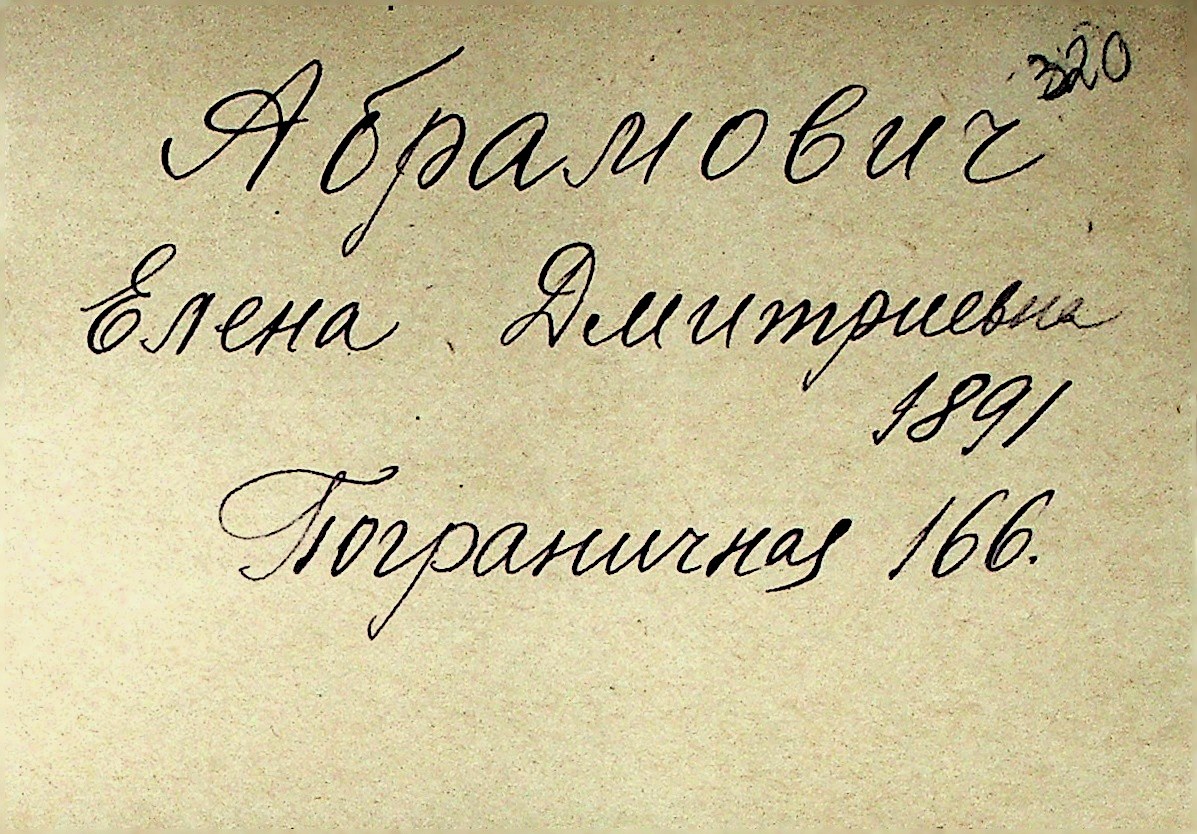 320
Абрамович
Елена Дмитриевна
1891
Пограничная 166.